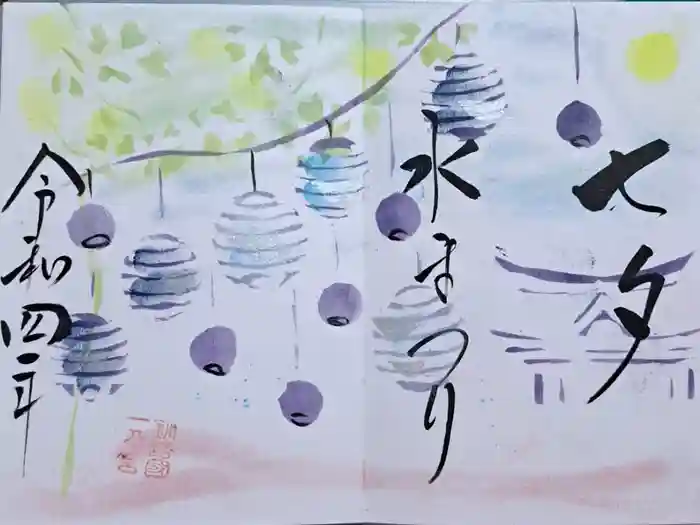 七夕
水まつり
令和四年